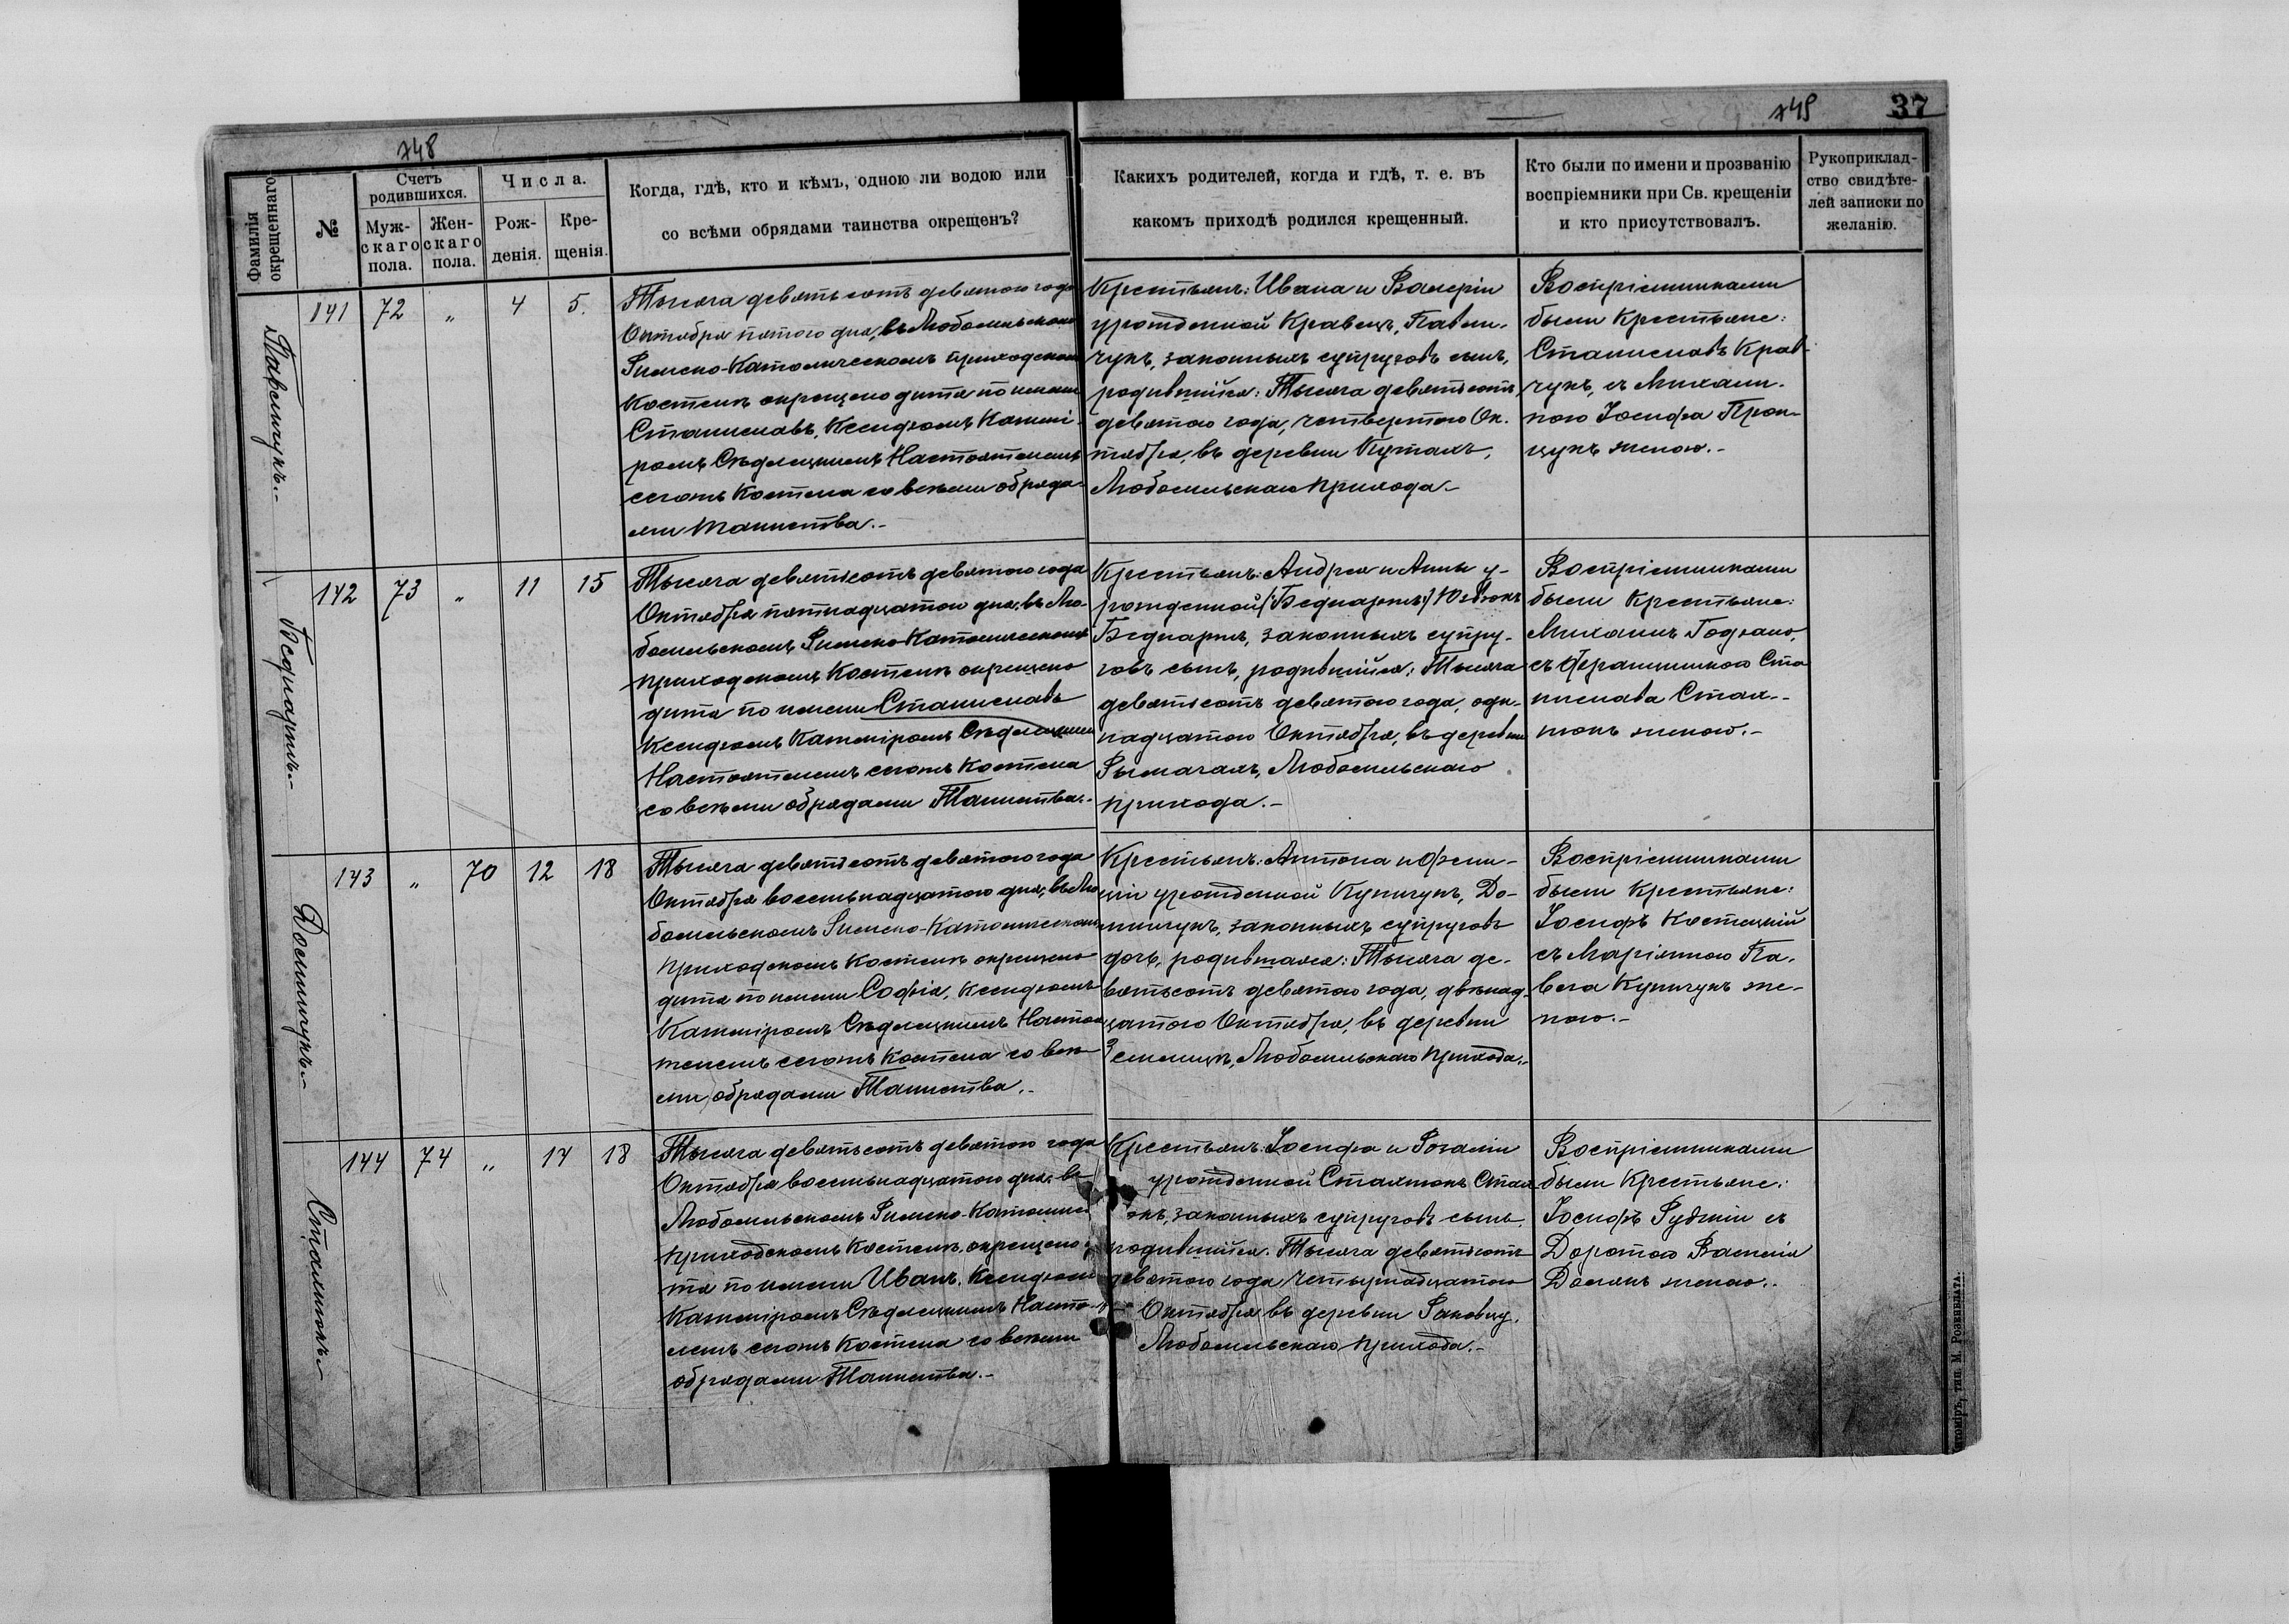 748
749
37
Фамилія
окрещеннаго
№
Счетъ
родившихся.
Муж-
скаго
пола.
Жен-
скаго
пола.
Числа.
Рож-
денія.
Кре-
щенія.
Когда, гдѣ, кто и кѣмъ, одною ли водою или
со всѣми обрядами таинства окрещенъ?
Какихъ родителей, когда и гдѣ, т. е. въ
какомъ приходѣ родился крещенный.
Кто были по имени и прозванію
воспріемники при Св. крещеніи
и кто присутствовалъ.
Рукоприклад-
ство свидѣте-
лей записки по
желанію.
Павельчукъ.-
141 72 „ 4 5.
Тысяча девятьсотъ девятого года
Октября пятого дня, въ Любомльскомъ
Римско-Католическомъ приходскомъ
Костелѣ окрещено дитя по имени
Станиславъ, Ксендзомъ Казимі-
ромъ Сѣдлецкимъ Настоятелемъ
сегожъ Костела со всѣми обряда-
ми таинства.-
Крестьянъ: Ивана и Валеріи
урожденной Кравецъ, Павель-
чукъ, законныхъ супруговъ сынъ,
родившійся: Тысяча девятьсотъ
девятого года, четвертого Ок-
тября, въ деревни Кутахъ,
Любомльскаго прихода.-
Воспріемниками
были Крестьяне:
Станиславъ Крав-
чукъ, съ Михали-
ною Іосифа Прон-
цукъ женою.-
Беднаржъ.-
142 73 „ 11 15
Тысяча девятьсотъ девятого года
Октября пятнадцатого дня, въ Лю-
бомльскомъ Римско-Католическомъ
приходскомъ Костелѣ окрещено
дитя по имени Станиславъ
Ксендзомъ Казиміромъ Сѣдлецкимъ
Настоятелемъ сегожъ Костела
со всѣми обрядами Таинства.-
Крестьянъ: Андрея и Анны у-
рожденной
Беднаржъ, законныхъ супру-
говъ сынъ, родившійся: Тысяча
девятьсотъ девятого года, оди-
надцатого Октября, въ деревни
Рымачахъ, Любомльскаго
прихода.-
Воспріемниками
были Крестьяне:
Михаилъ
съ Францишкою Ста
нислава Стах-
нюкъ женою.-
Домничукъ.-
143 „ 70 12 18
Тысяча девятьсотъ девятого года
Октября восемьнадцатого дня, въ Лю-
бомльскомъ Римско-Католическомъ
приходскомъ Костелѣ окрещено
дитя по имени Софія, Ксендзомъ
Казиміромъ Сѣдлецкимъ Настоя
телемъ сегожъ Костела со всѣ-
ми обрядами Таинства.-
Крестьянъ: Антона и Фели-
ціи урожденной Куничукъ, До-
мничукъ, законныхъ супруговъ
дочь, родившаяся: Тысяча де-
вятьсотъ девятого года, двѣнад-
цатого Октября, въ деревни
Землицѣ, Любомльскаго прихода.-
Воспріемниками
были Крестьяне:
Іосифъ Костецкій
съ Маріянною Па-
вела Куничукъ же-
ною.-
Стахнюкъ.-
144 74 „ 14 18
Тысяча девятьсотъ девятого года
Октября восемьнадцатого дня, въ
Любомльскомъ Римско-Католич
приходскомъ Костелѣ, окрещено
тя по имени Иванъ, Ксендзомъ
Казиміромъ Сѣдлецкимъ Насто-
лемъ сегожъ Костела со всѣми
обрядами Таинства.-
Крестьянъ: Іосифа и Розаліи
урожденной Стахнюкъ Стах
юкъ, законныхъ супруговъ сынъ,
родившійся: Тысяча девятьсотъ
девятого года четырнадцатого
Октября въ деревни Раковцу,
Любомльскаго прихода.-
Воспріемниками
были Крестьяне:
Іосифъ Рудзкій съ
Доротою Василія
женою.-
томіръ, тип. М. Розенблата.